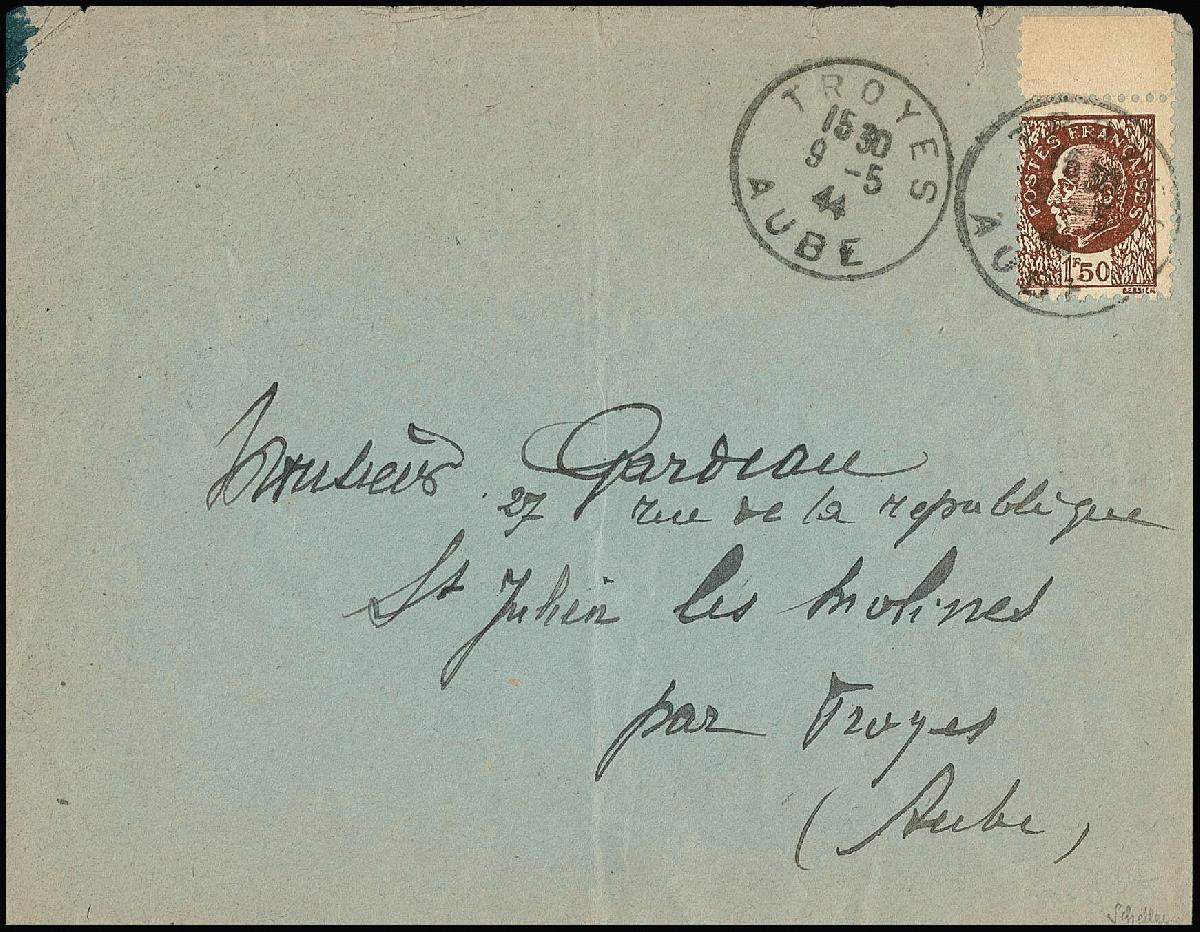 TROYES
15 30
9 -5
44
AUBE
POSTES FRANÇAISES
1F50
BERSIER
AUBE
Monsieur Gardeau
27 rue de la republique
St Julien les molines
par Troyes
(Aube)